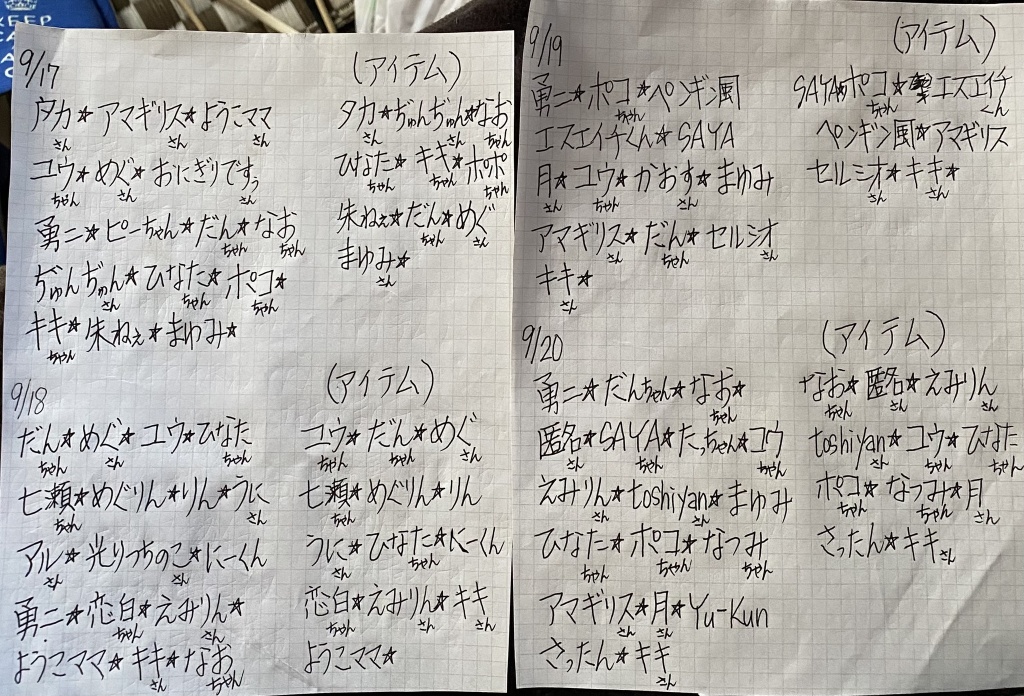 KEEP
CA
9/17
(アイテム)
タカさん☆アマギリスさん☆ようこママ
ユウちゃん☆めぐさん☆おにぎりですぅさん
勇二☆ピーちゃん☆だんちゃん☆なおちゃん
ぢゅんぢゅんさん☆ひなたちゃん☆ポコちゃん☆
キキちゃん☆朱ねぇ☆まゆみ☆
タカさん☆ぢゅんぢゅんさん☆なおちゃん
ひなたちゃん☆キキちゃん☆ポポちゃん
朱ねぇ☆だん☆めぐさん
まゆみさん☆
9/18
(アイテム)
だんちゃん☆めぐさん☆ユウ☆ひなたちゃん
七瀬ちゃん☆めぐりん☆りん☆うにさん
アルさん☆光りっちのこさん☆にーくん
勇二☆恋白ちゃん☆えみりんさん☆
ようこママ☆キキさん☆なおちゃん
ユウちゃん☆だんちゃん☆めぐさん
七瀬ちゃん☆めぐりん☆りん
うにさん☆ひなたちゃん☆にーくん
恋白ちゃん☆えみりんさん☆キキさん
ようこママ☆
9/19
(アイテム)
勇二☆ポコちゃん☆ペンギン風
エスエイチくん☆SAYA
月さん☆ユウちゃん☆かおすさん☆まゆみ
アマギリスさん☆だんちゃん☆セルシオさん
キキさん☆
SAYA☆ポコちゃん☆エスエイチくん
ペンギン風☆アマギリス
セルシオさん☆キキさん☆
9/20
(アイテム)
勇二☆だんちゃん☆なおちゃん☆
匿名さん☆SAYAちゃん☆たっちゃん☆ユウちゃん
えみりんさん☆toshiyanさん☆まゆみ
ひなたちゃん☆ポコちゃん☆なつみちゃん
アマギリスさん☆月さん☆Yu-Kun
さったん☆キキさん
なおちゃん☆匿名さん☆えみりんさん
toshiyanさん☆ユウちゃん☆ひなたちゃん
ポコちゃん☆なつみちゃん☆月さん
さったん☆キキさん